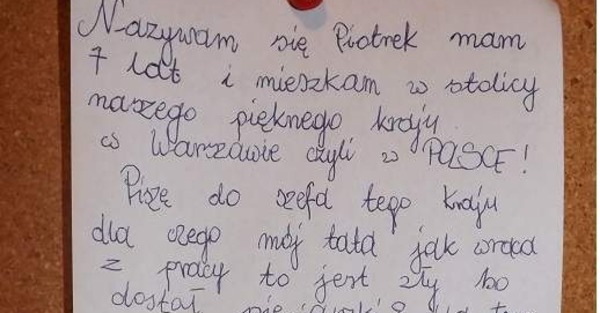 Nazywam się Piotrek mam
7 lat i mieszkam w stolicy
naszego pięknego kraju
w Warszawie czyli w POLSCE!
Piszę do szefa tego kraju
dla czego mój tata jak wraca
z pracy to jest zły bo
dostał się